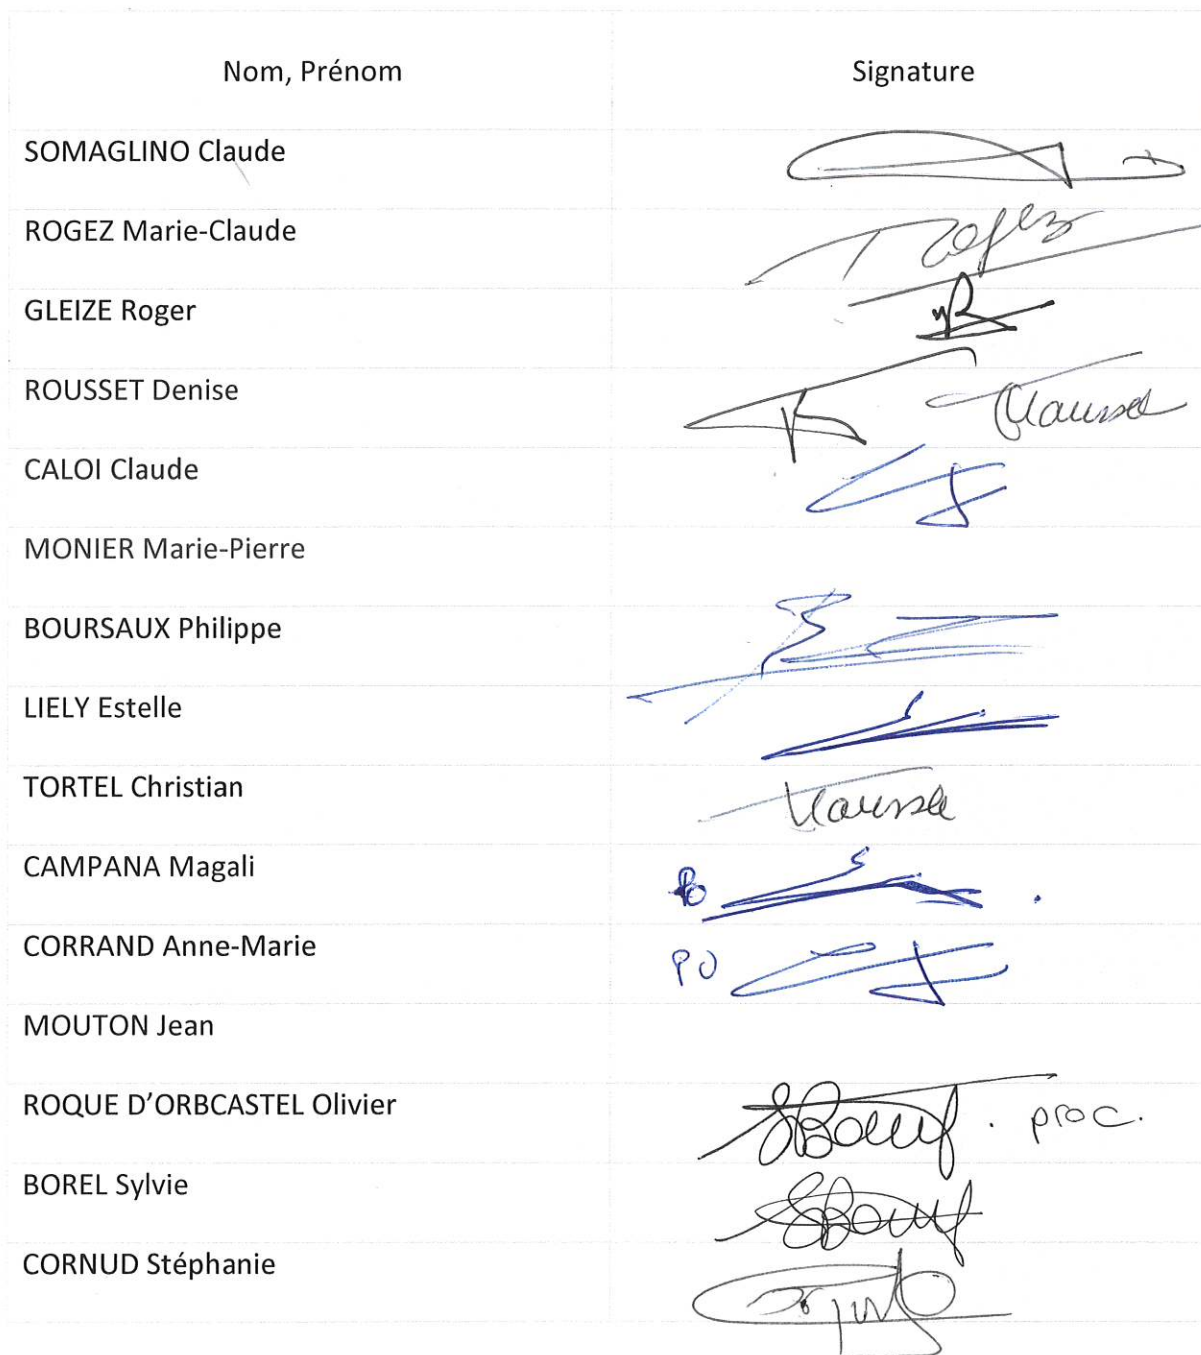 Nom, Prénom Signature
SOMAGLINO Claude
ROGEZ Marie-Claude Rogez
GLEIZE Roger
ROUSSET Denise
CALOI Claude
MONIER Marie-Pierre
BOURSAUX Philippe
LIELY Estelle
TORTEL Christian
CAMPANA Magali PO
CORRAND Anne-Marie PO
MOUTON Jean
ROQUE D'ORBCASTEL Olivier proc.
BOREL Sylvie
CORNUD Stéphanie